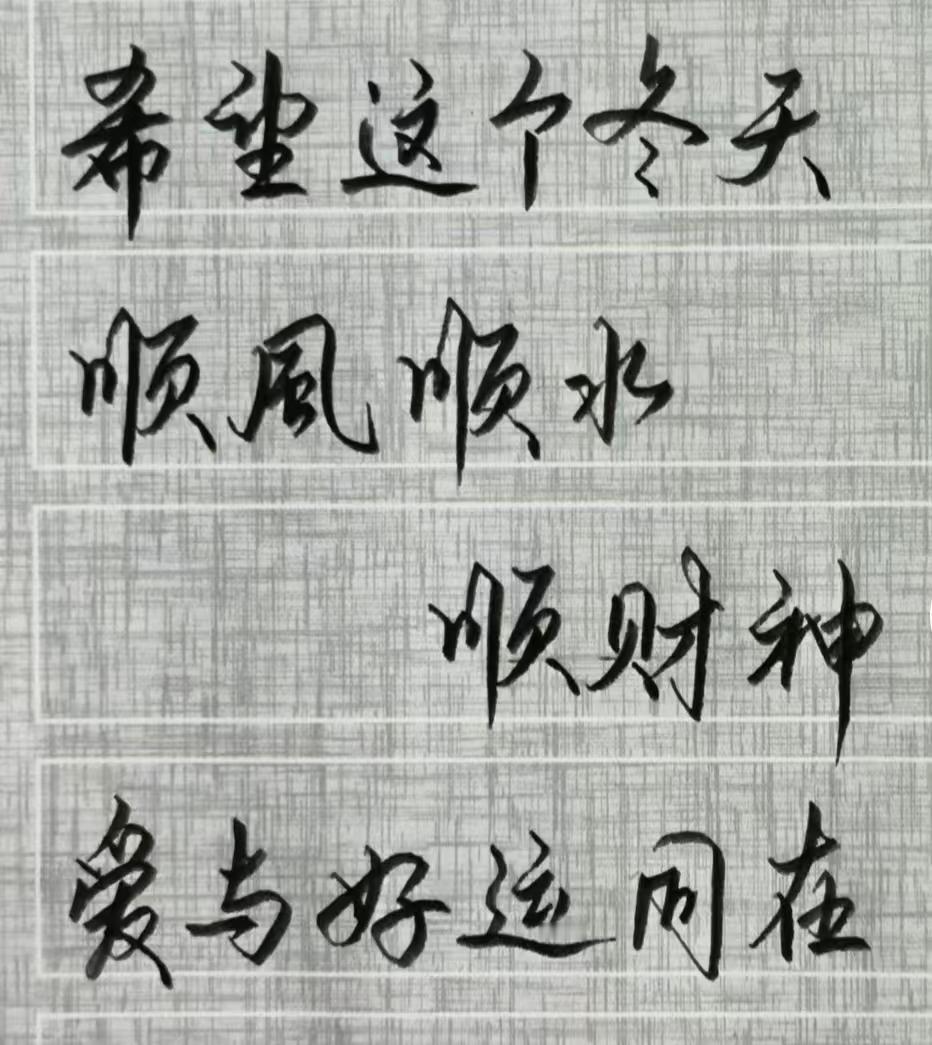 希望这个冬天
顺風顺水
顺财神
爱与好运同在